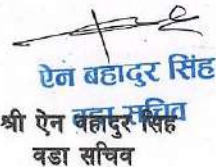 ऐन बहादुर सिंह
वडा सचिव
श्री ऐन बहादुर सिंह
वडा सचिव